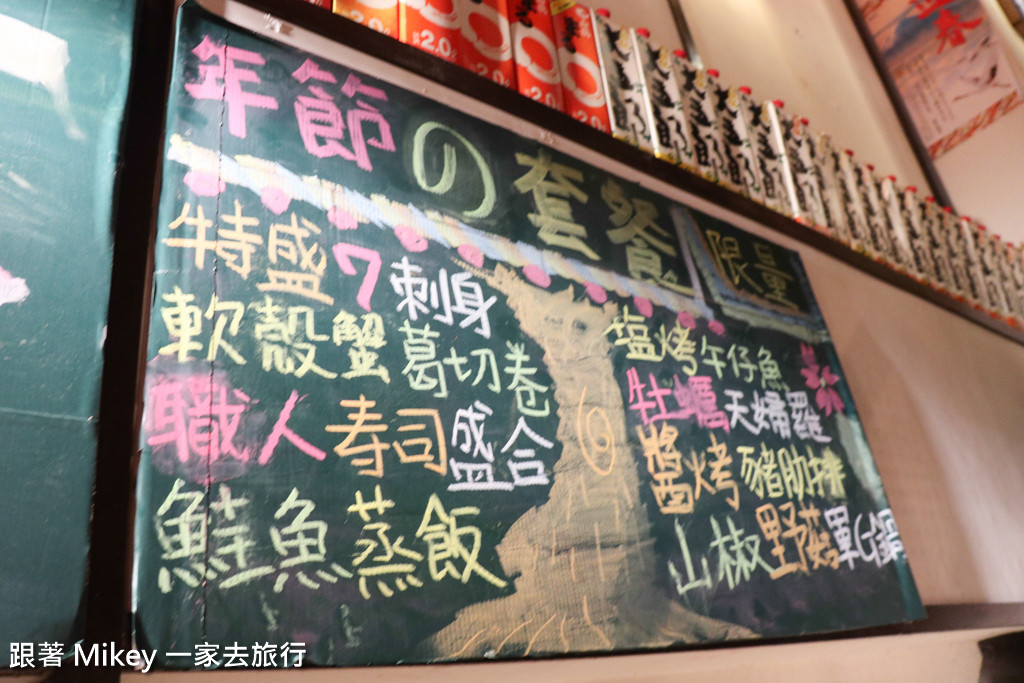 年節の套餐
限量
特盛7刺身
軟殼蟹葛切卷
職人寿司盛合
鮭魚蒸飯
塩烤午仔魚
牡蠣天婦羅
醬烤豬肋排
山椒野菇軍鍋
$2.0
$2.0
$2.0
$2.0
跟著 Mikey 一家去旅行